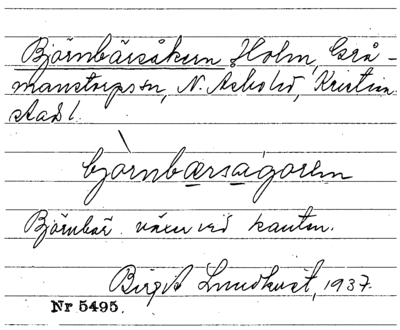 Björnbärsåkern Holm, Grå-
manstorps sn, N. Åsbo hd, Kristian
stads l.
björnbærsågorn
Björnbär växer vid kanten.
Birgit Lundkvist, 1937.
Nr 5495.